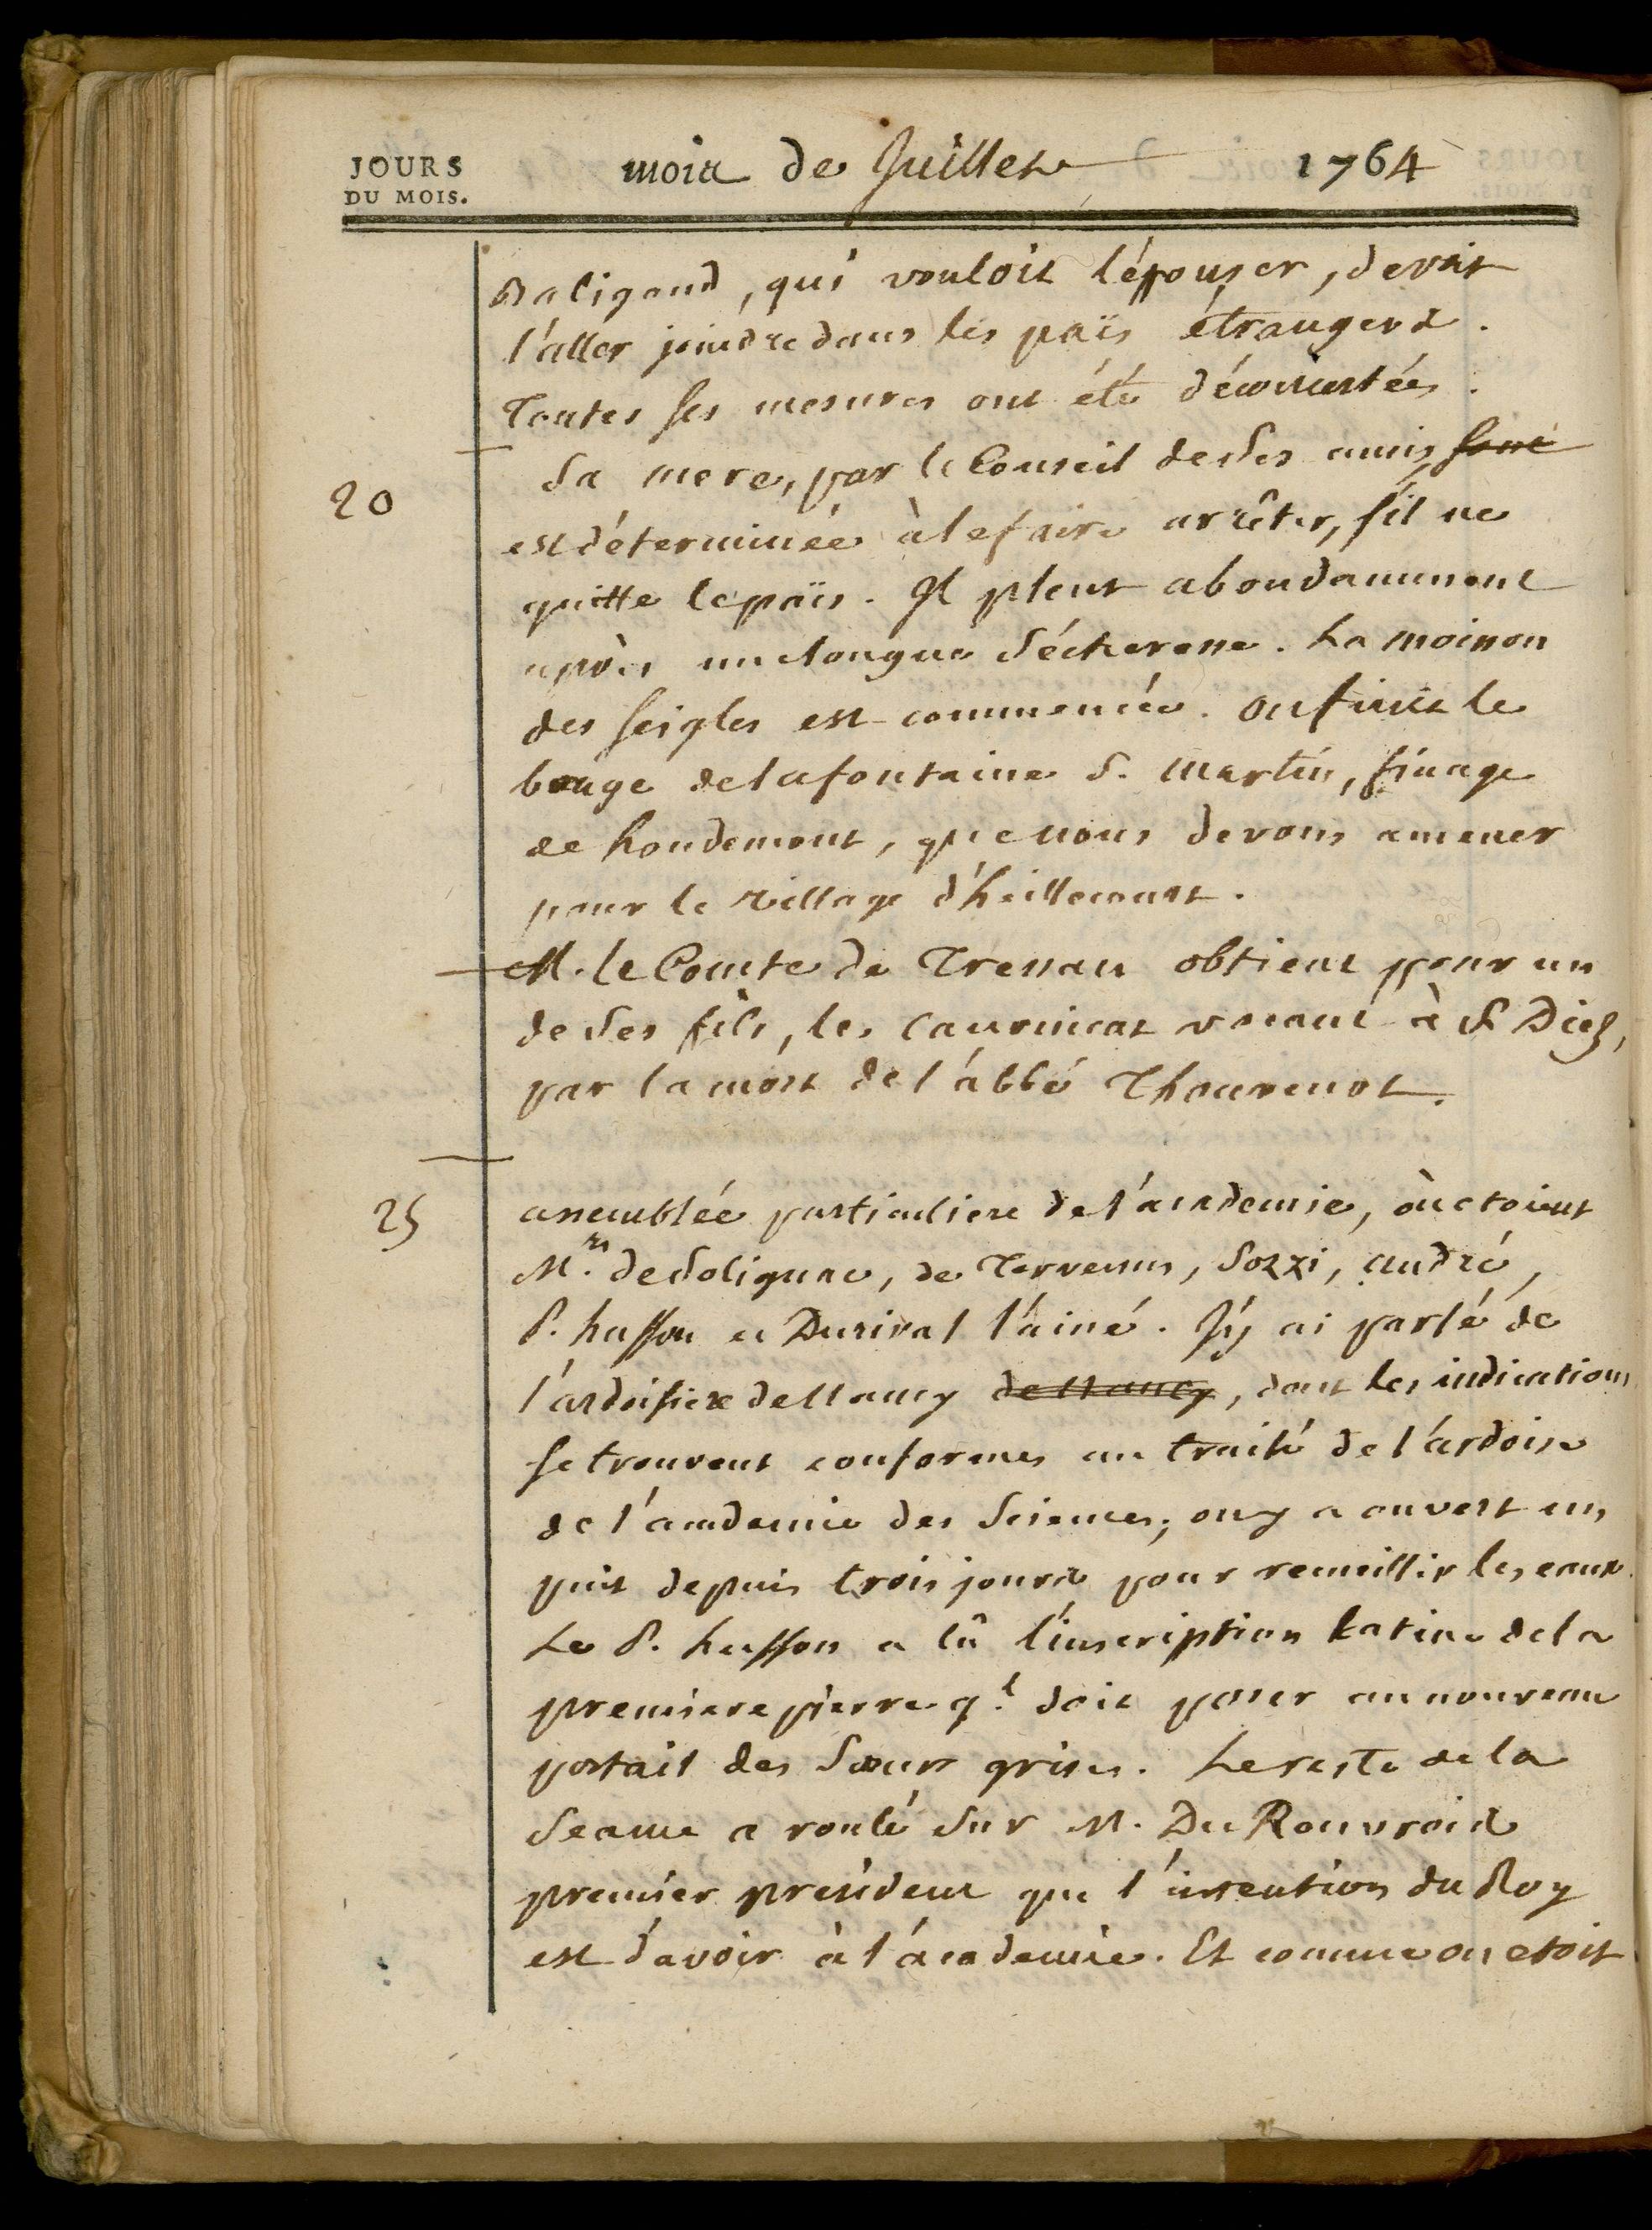 JOURS
DU MOIS.
mois de Juillet 1764
Baligand, qui vouloit l'épouser, devoit
l'aller joindre dans les païs étrangers.
Toutes ses mesures ont été déconcertées.
20
Sa mere, par le Conseil de Ses amis,
est déterminée à le faire arrêter, s'il ne
quitte le païs. Il pleut abondamment
après une longue Sécheresse. La moisson
des seigles est commencée. On finit le
bouge de la fontaine S. Martin, finage
de houdemont, que nous devons amener
pour le village d'heillecourt.
M. le Comte de Tressan obtient pour un
de Ses fils, le canonicat vacant à S. Diez,
par la mort de l'abbé Thouvenot.
25
assemblée particuliere de l'academie, où etoient
M.rs de Solignac, de Tervenus, Sozzi, André,
P. husson et Durival l'ainé. J'y ai parlé de
l'ardoisiere de Nancy de Nancy, dont les indications
se trouvent conformes au traité de l'ardoise
de l'academie des Sciences; on y a ouvert un
puit depuis trois jours pour recueillir les eaux.
Le P. husson a lû l'inscription latine de la
premiere pierre q.l doit poser au nouveau
portail des Sœurs grises. Le reste de la
Seance a roulé Sur M. Du Rouvrois
premier president que l'intention du Roy
est d'avoir à l'academie. Et comme on etoit